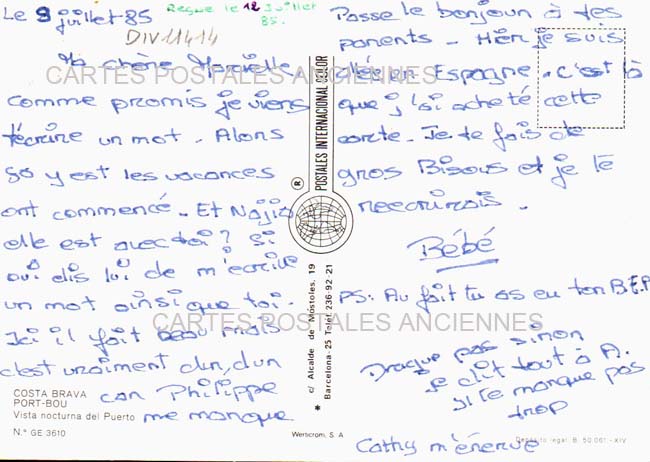 Le 9 juillet 85
Reçue le 12 Juillet
85.
DIV11414
Ma chère Murielle
comme promis je viens
t'écrire un mot. Alors
sa y est les vacances
ont commencé. Et Najia
elle est avec toi? Si
oui dis lui de m'écrire
un mot ainsi que toi.
Ici il fait beau mais
c'est vraiment dur, dur
car Philippe
me manque
Passe le bonjour à tes
parents - Hier je suis
allée en Espagne. c'est là
que j'ai acheté cette
carte. Je te fais de
gros Bisous et je te
reecrirais.
Bébé
PS: Au fait tu as eu ton B.E.P
Drague pas sinon
je dit tout à A.
si te manque pas
trop
Cathy m'énerve
CARTES POSTALES ANCIENNES
CARTES POSTALES ANCIENNES
® POSTALES INTERNACIONAL COLOR
* c/ Alcalde de Móstoles, 19
Barcelona-25 Telef. 236-92 21
COSTA BRAVA
PORT-BOU
Vista nocturna del Puerto
N.º GE 3610
Werticrom, S. A
Depósito legal: B. 50.061-XIV